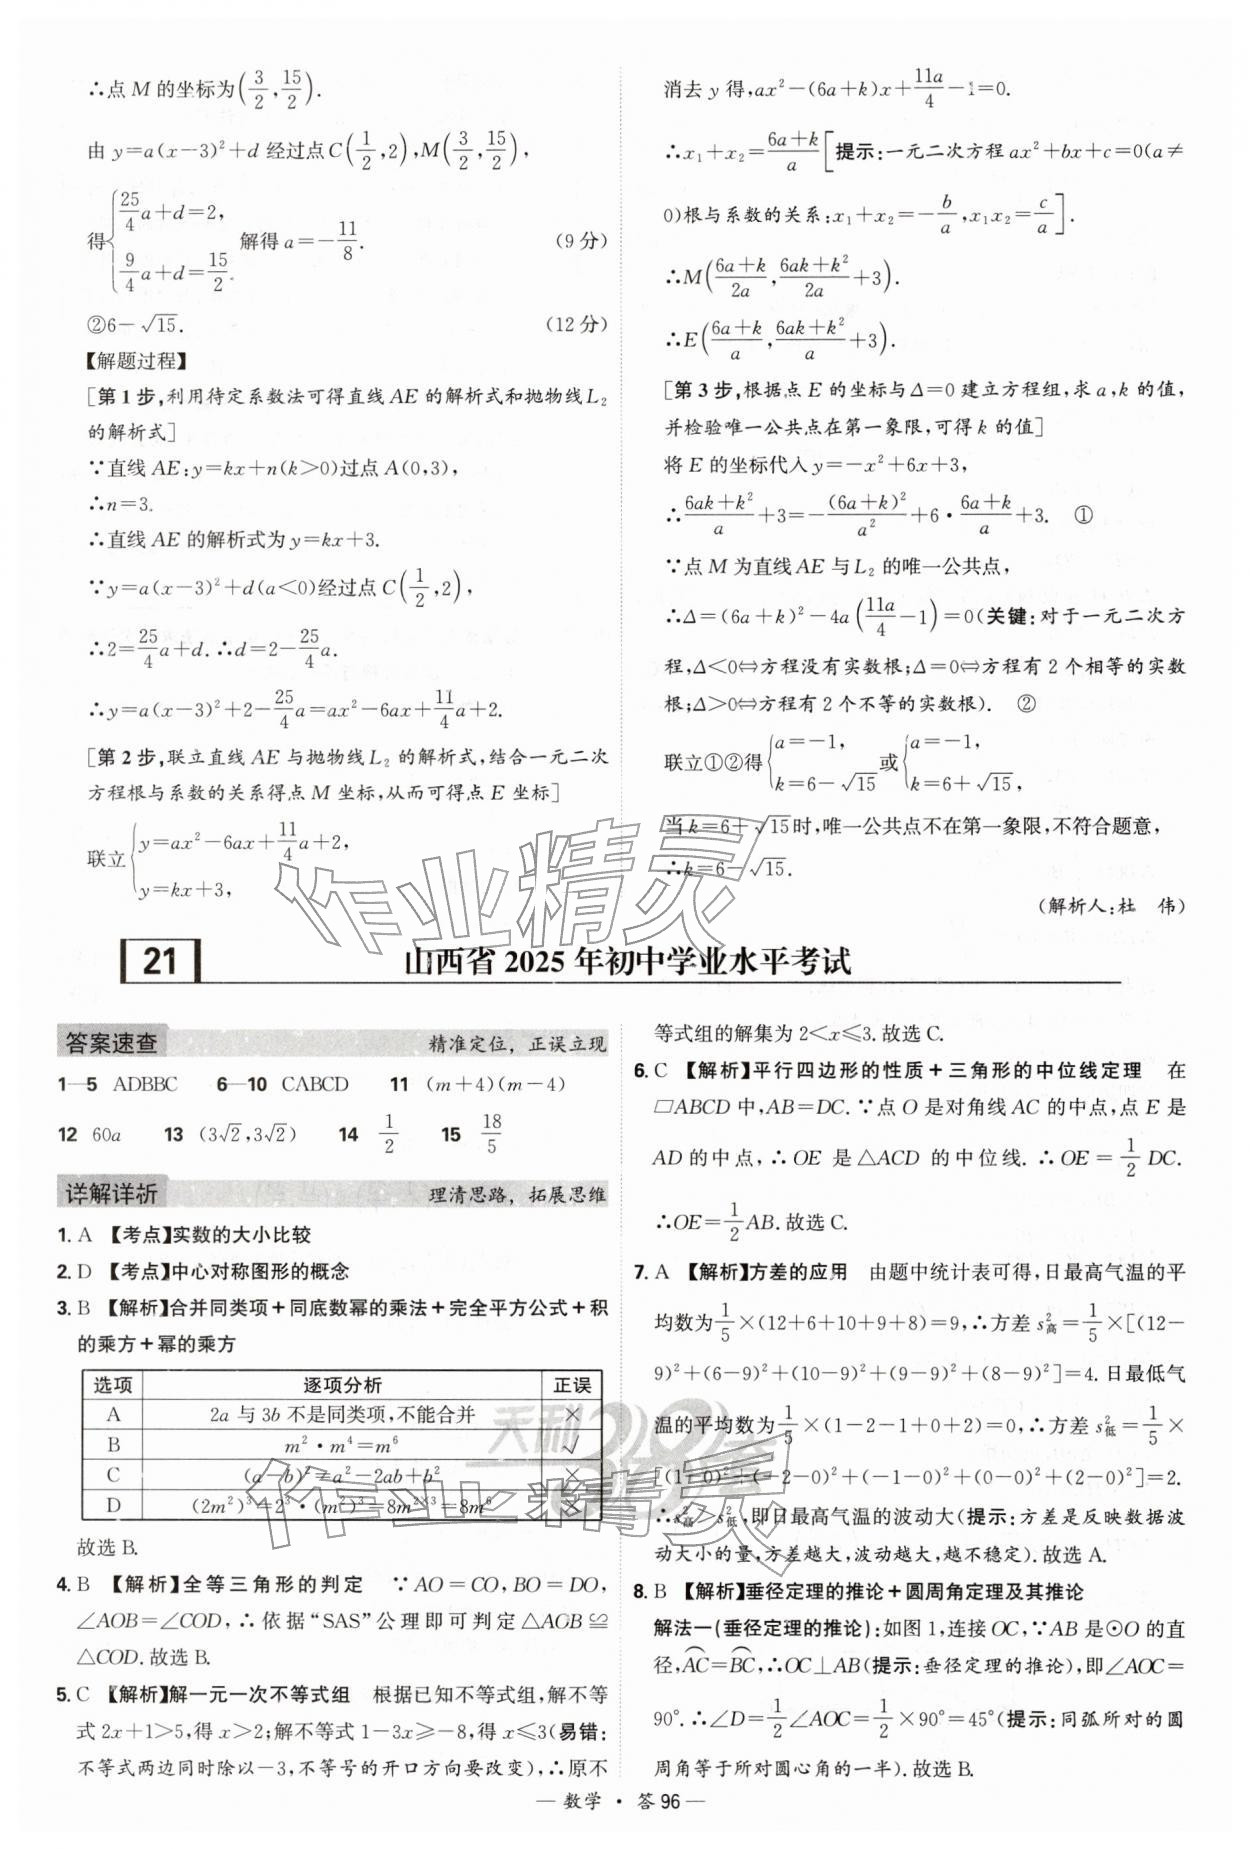 ∴点 M 的坐标为(3/2,15/2).
由 y=a(x-3)²+d 经过点C(1/2,2),M(3/2,15/2),
得{25/4a+d=2, 9/4a+d=15/2. 解得 a=-11/8. (9 分)
②6-√15. (12 分)
【解题过程】
[第 1 步,利用待定系数法可得直线 AE 的解析式和抛物线L₂
的解析式]
∵直线 AE:y=kx+n(k>0)过点 A(0,3),
∴n=3.
∴直线 AE 的解析式为 y=kx+3.
∵y=a(x-3)²+d(a<0)经过点 C(1/2,2),
∴2=25/4a+d.∴d=2-25/4a.
∴y=a(x-3)²+2-25/4a=ax²-6ax+11/4a+2.
[第 2 步,联立直线 AE 与抛物线 L₂ 的解析式,结合一元二次
方程根与系数的关系得点 M 坐标,从而可得点 E 坐标]
联立{y=ax²-6ax+11/4a+2, y=kx+3,
消去 y 得,ax²-(6a+k)x+11a/4-1=0.
∴x₁+x₂=(6a+k)/a[提示:一元二次方程 ax²+bx+c=0(a≠
0)根与系数的关系:x₁+x₂=-b/a,x₁x₂=c/a].
∴M((6a+k)/2a,(6ak+k²)/2a+3).
∴E((6a+k)/a,(6ak+k²)/a+3).
[第 3 步,根据点 E 的坐标与Δ=0 建立方程组,求 a,k 的值,
并检验唯一公共点在第一象限,可得 k 的值]
将 E 的坐标代入 y=-x²+6x+3,
∴(6ak+k²)/a+3=-(6a+k)²/a²+6·(6a+k)/a+3. ①
∵点 M 为直线AE 与L₂ 的唯一公共点,
∴Δ=(6a+k)²-4a(11a/4-1)=0(关键:对于一元二次方
程,Δ<0⇔方程没有实数根;Δ=0⇔方程有 2 个相等的实数
根;Δ>0⇔方程有 2 个不等的实数根). ②
联立①②得{a=-1, k=6-√15 或{a=-1, k=6+√15,
当 k=6+√15时,唯一公共点不在第一象限,不符合题意,
∴k=6-√15.
(解析人:杜 伟)
21 山西省 2025 年初中学业水平考试
答案速查 精准定位,正误立现
1—5 ADBBC 6—10 CABCD 11 (m+4)(m-4)
12 60a 13 (3√2,3√2) 14 1/2 15 18/5
详解详析 理清思路,拓展思维
1. A 【考点】实数的大小比较
2. D 【考点】中心对称图形的概念
3. B 【解析】合并同类项+同底数幂的乘法+完全平方公式+积
的乘方+幂的乘方
选项 逐项分析 正误
A 2a 与 3b 不是同类项,不能合并 ×
B m²·m⁴=m⁶ √
C (a-b)²=a²-2ab+b² ×
D (2m²)³=2³·(m²)³=8m²ˣ³=8m⁶ ×
故选 B.
4. B 【解析】全等三角形的判定 ∵AO=CO,BO=DO,
∠AOB=∠COD,∴依据“SAS”公理即可判定△AOB≌
△COD.故选 B.
5. C 【解析】解一元一次不等式组 根据已知不等式组,解不等
式 2x+1>5,得 x>2;解不等式 1-3x≥-8,得 x≤3(易错:
不等式两边同时除以-3,不等号的开口方向要改变),∴原不
等式组的解集为 2<x≤3.故选 C.
6. C 【解析】平行四边形的性质+三角形的中位线定理 在
□ABCD 中,AB=DC.∵点 O 是对角线 AC 的中点,点 E 是
AD 的中点,∴OE 是△ACD 的中位线.∴OE=1/2DC.
∴OE=1/2AB.故选 C.
7. A 【解析】方差的应用 由题中统计表可得,日最高气温的平
均数为1/5×(12+6+10+9+8)=9,∴方差 s²高=1/5×[(12-
9)²+(6-9)²+(10-9)²+(9-9)²+(8-9)²]=4.日最低气
温的平均数为1/5×(1-2-1+0+2)=0,∴方差 s²低=1/5×
[(1-0)²+(-2-0)²+(-1-0)²+(0-0)²+(2-0)²]=2.
∴s²高>s²低,即日最高气温的波动大(提示:方差是反映数据波
动大小的量,方差越大,波动越大,越不稳定).故选 A.
8. B 【解析】垂径定理的推论+圆周角定理及其推论
解法一(垂径定理的推论):如图 1,连接 OC,∵AB 是⊙O 的直
径,AC⌒=BC⌒,∴OC⊥AB(提示:垂径定理的推论),即∠AOC=
90°.∴∠D=1/2∠AOC=1/2×90°=45°(提示:同弧所对的圆
周角等于所对圆心角的一半).故选 B.
— 数学 · 答 96 —
作业精灵
天利38套
作业精灵